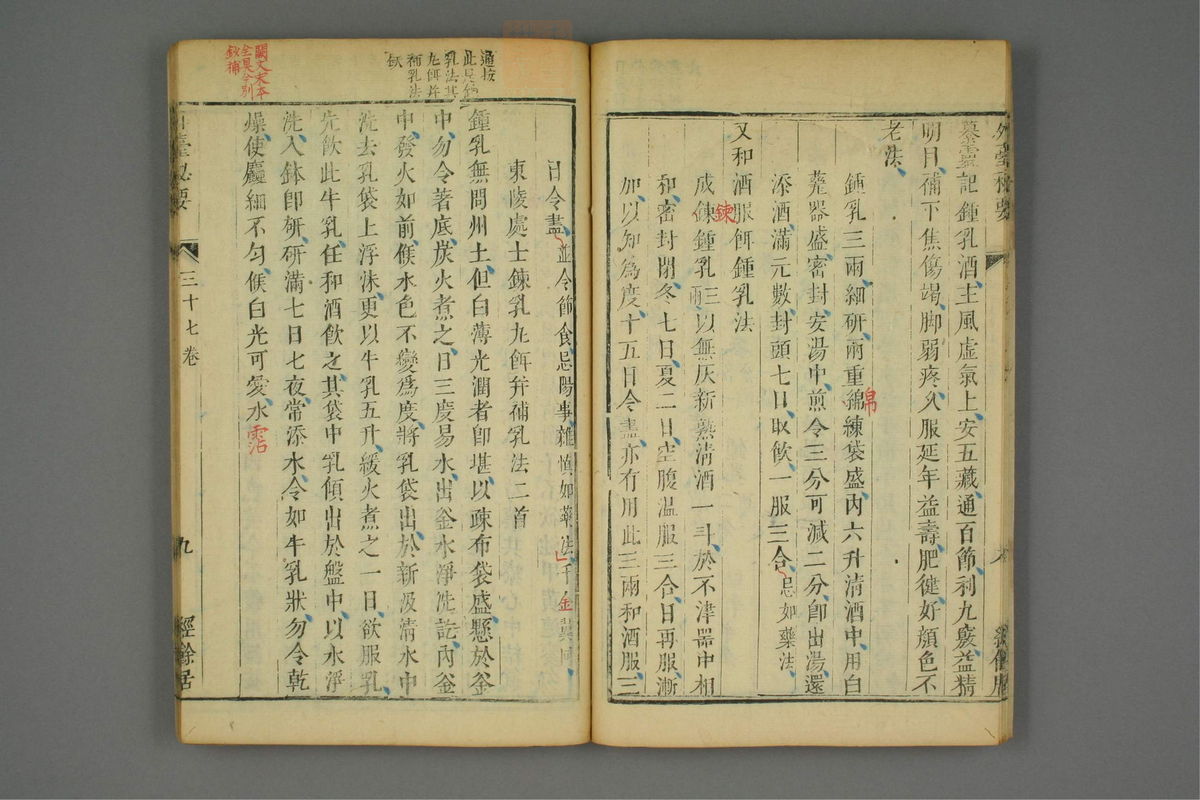 外臺祕要
纂靈記鍾乳酒主風虛氣上安五藏通百節利九竅益精
明目補下焦傷竭脚弱疼久服延年益壽肥健好顏色不
老法
鍾乳三兩細研兩重綿練袋盛內六升清酒中用白
帛
甆器盛密封安湯中煎令三分可減二分卽出湯還
添酒滿元數封頭七日取飲一服三合忌如藥法
又和酒服餌鍾乳法
鍊
成鍊鍾乳三兩以無灰新熟清酒一斗於不津器中相
和密封閉冬七日夏二日空腹溫服三合日再服漸
加以知爲度十五日令盡亦有用此三兩和酒服三
日令盡並令節食忌陽事雜慎如藥法千金翼同
東陵處士鍊乳丸餌幷補乳法二首
鍾乳無問州土但白薄光潤者卽堪以疎布袋盛懸於釜
中勿令著底炭火煮之日三度易水出釜水淨洗訖內釜
中發火如前候水色不變爲度將乳袋出於新汲清水中
洗去乳袋上浮沫更以牛乳五升緩火煮之一日欲服乳
先飲此牛乳任和酒飲之其袋中乳傾出於盤中以水淨
洗入鉢卽研研滿七日七夜常添水令如牛乳狀勿令乾
燥使麤細不勻候白光可愛水
霑
通按
此是鍊
乳法其
丸餌并
補乳法
缺
闕文宋本
全具今別
鈔補
三十七卷
九
經餘居